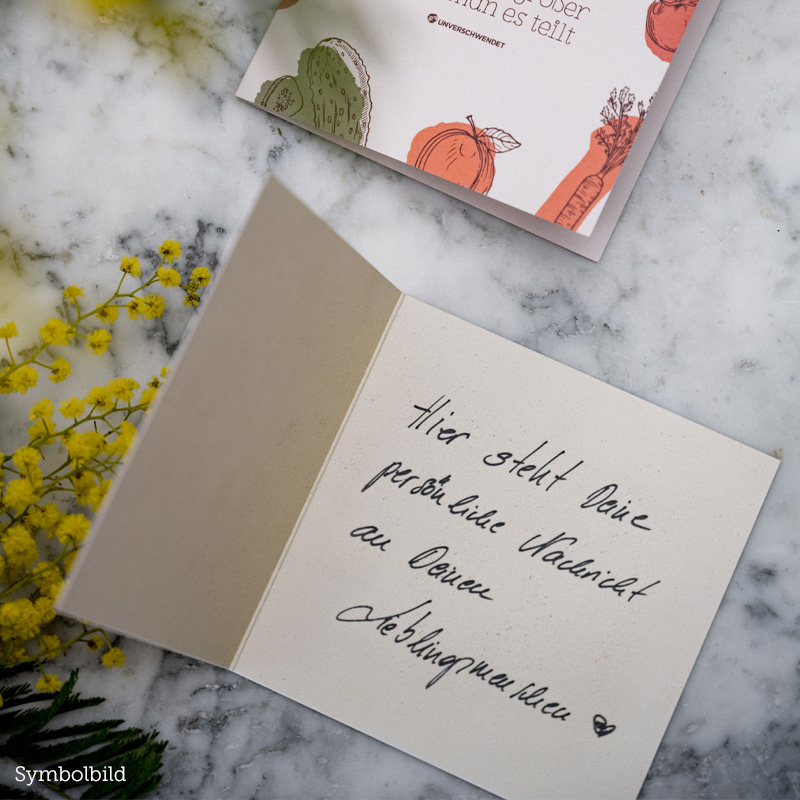 über
es teilt
UNVERSCHWENDET
Hier steht Deine
persönliche Nachricht
an Deinen
Lieblingsmenschen ♥
Symbolbild